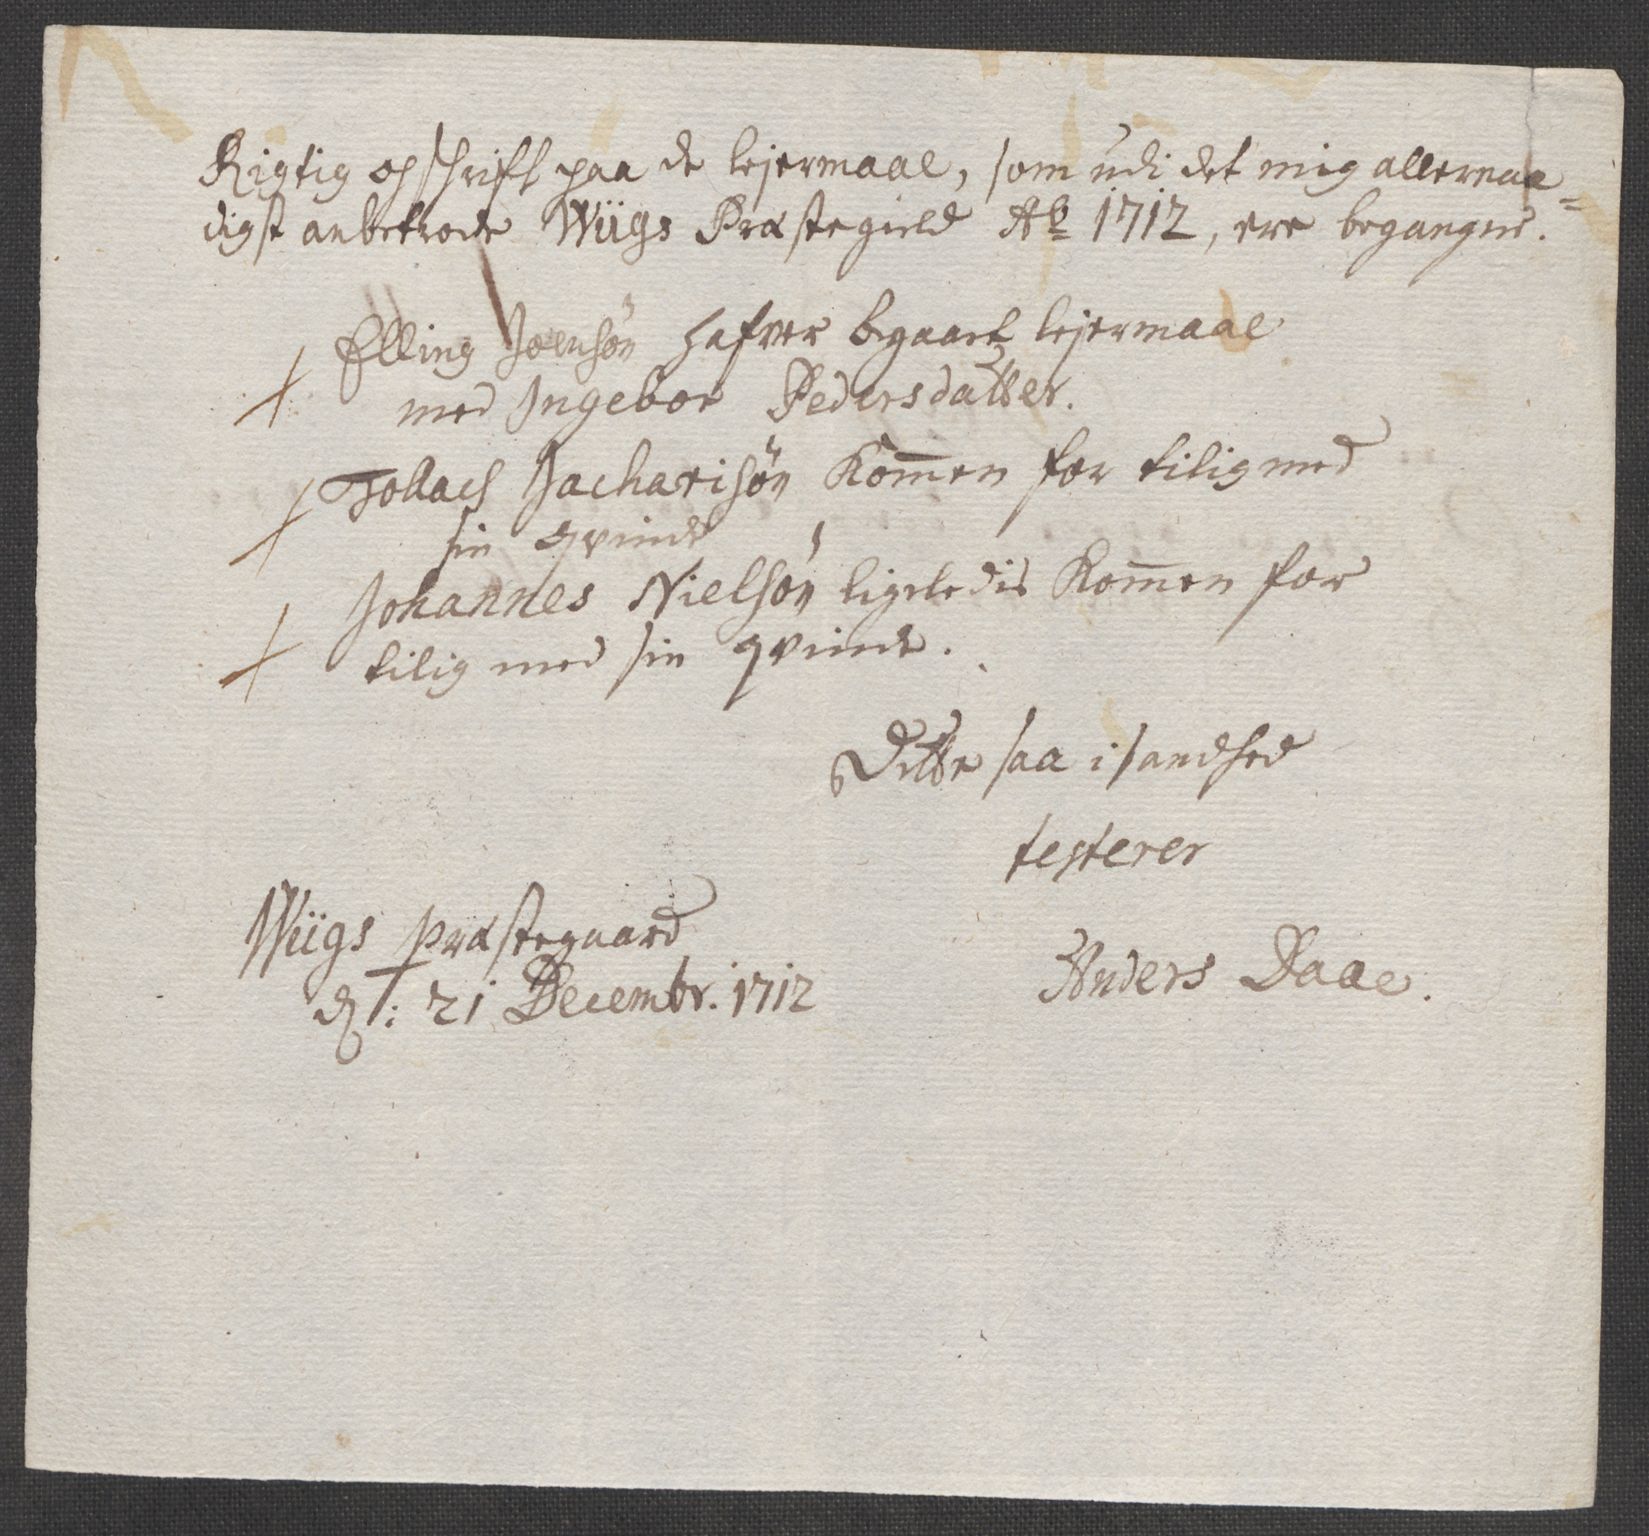 Rigtig opschrift paa de lejermaal, som udi det mig allernaa=
digst anbetrode Wiigs Præstegield Aō 1712, ere begangne.
Elling Joensøn hafver begaaet lejermaal
med Ingebor Pedersdatter.
Zacharisøn Kom̄en for tilig med
sin qvinde
Johannes Nielsøn ligeledis Kom̄en for
tilig med sin qvinde.
Dette saa i sandhed
testerer
Wiigs Præstegaard
d: 21 Decembr. 1712
Anders Daae.